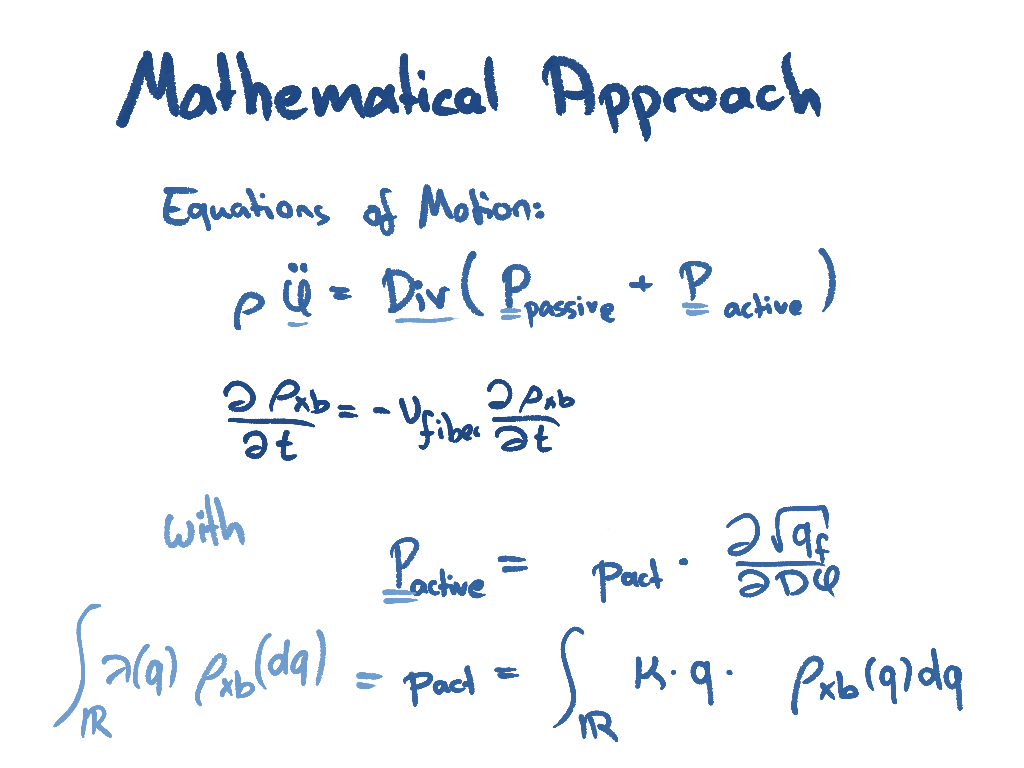 Mathematical Approach
Equations of Motion:
ρ φ̈ = Div ( P passive + P active )
∂ρxb/∂t = - υfiber ∂ρxb/∂t
with
Pactive = pact · ∂√qf/∂Dφ
∫ℝ λ(q) ρxb(dq) = pact = ∫ℝ K · q · ρxb(q)dq